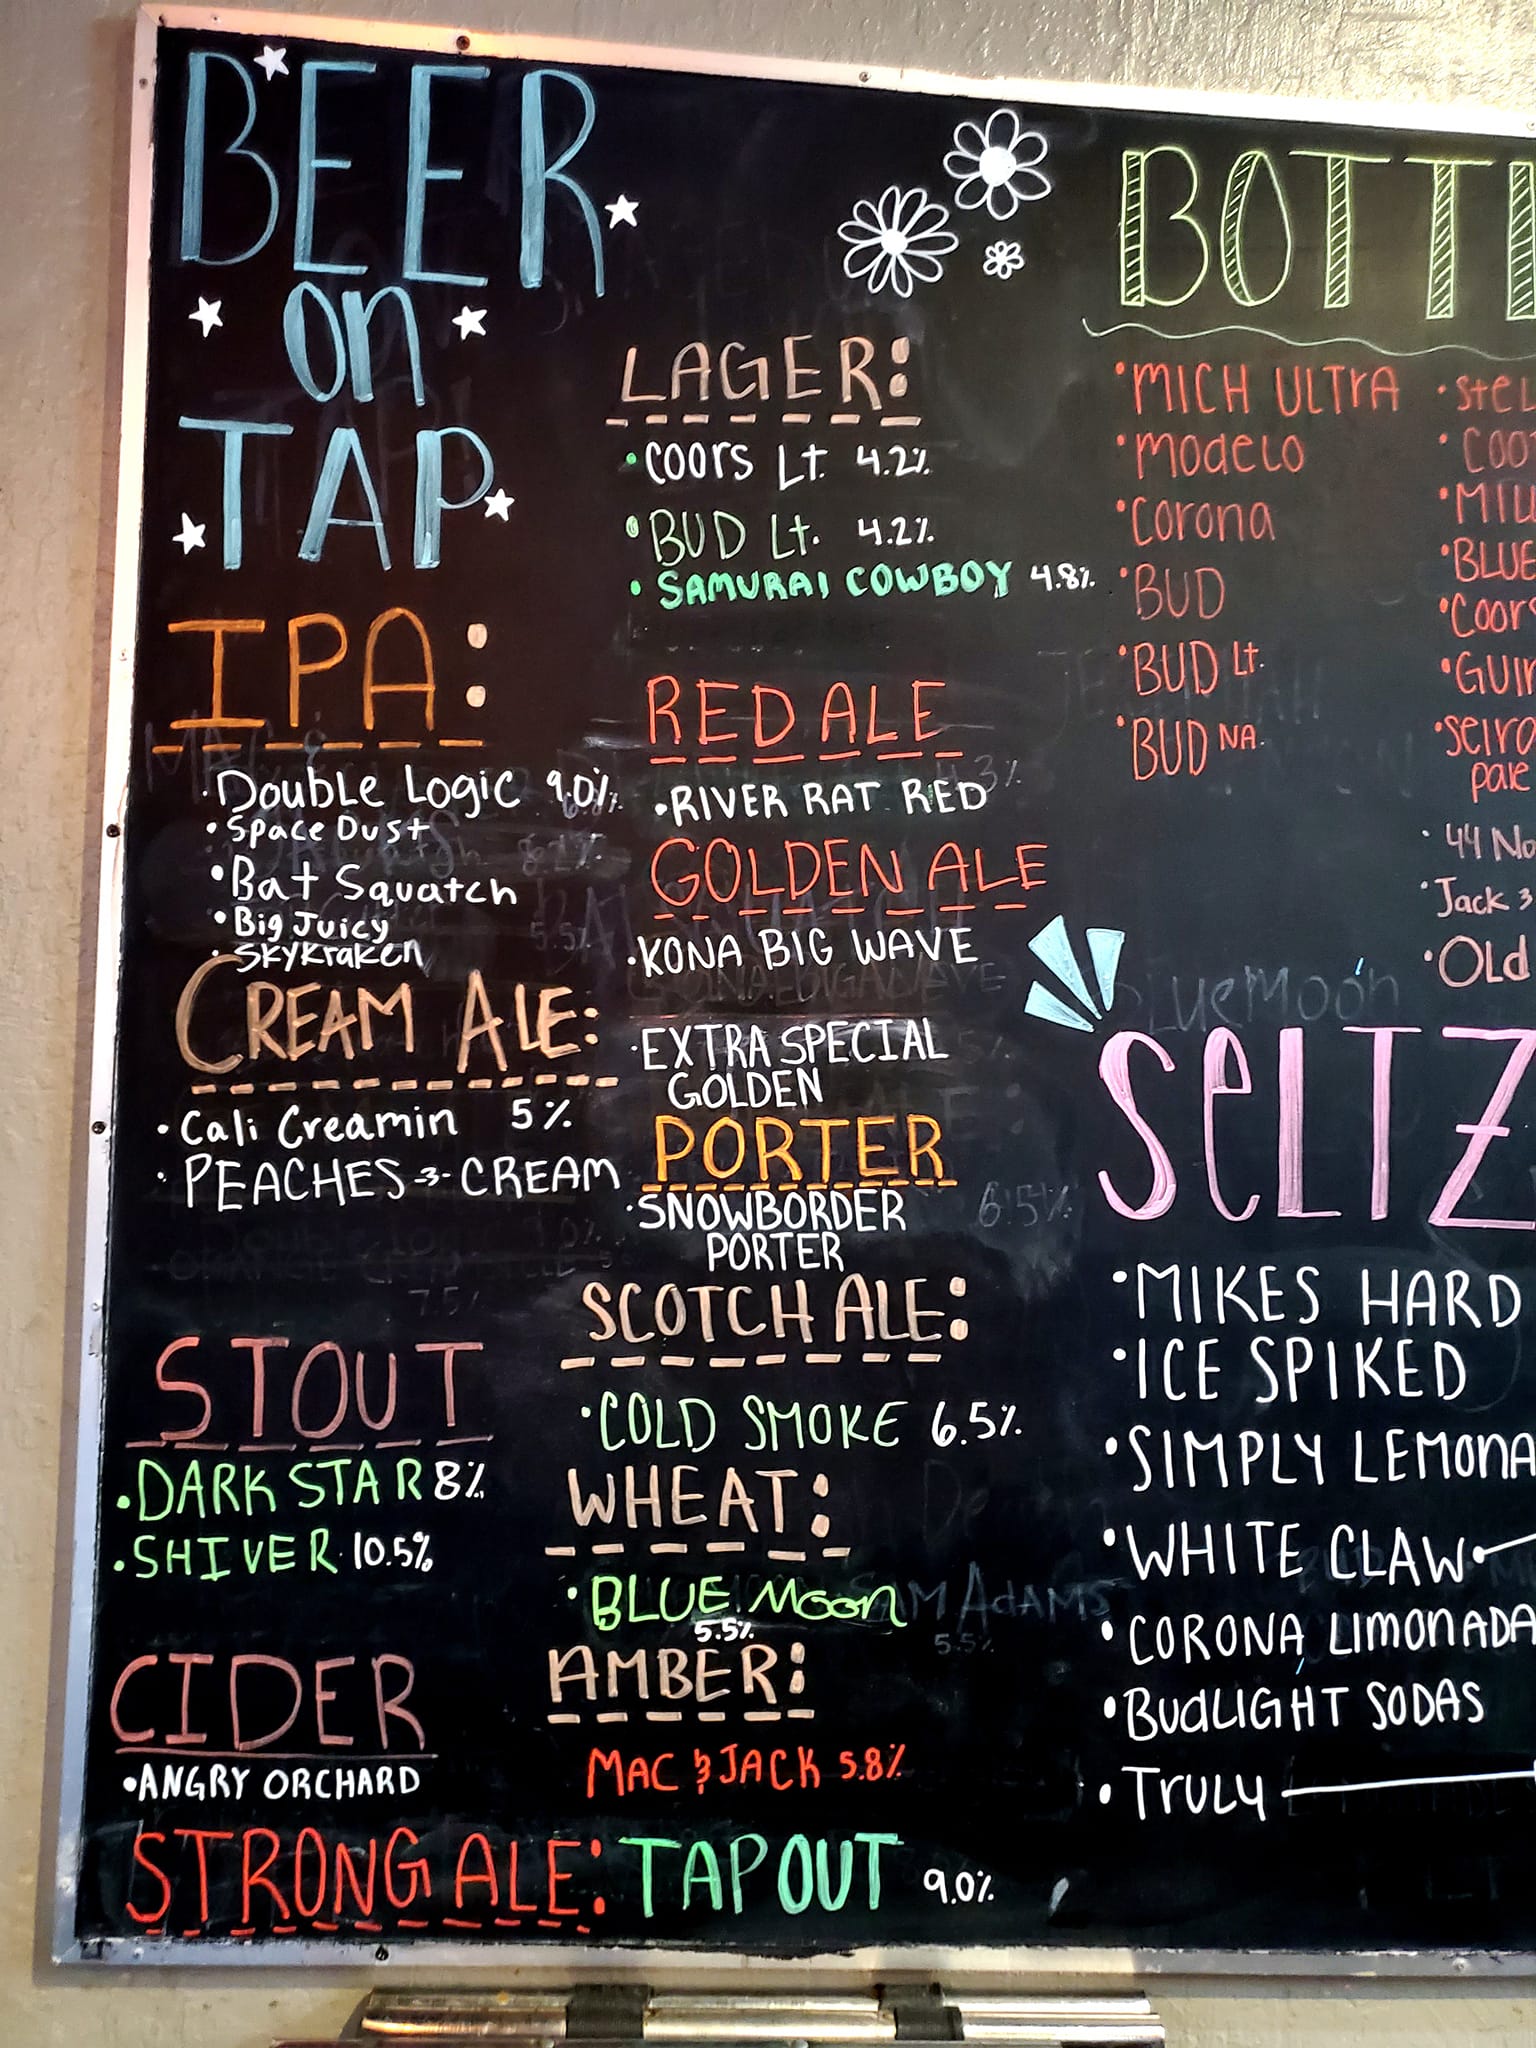 BEER
on
TAP
IPA:
• Double Logic 9.0%
• Space Dust
• Bat Squatch
• Big Juicy
• Skykraken
CREAM ALE:
• Cali Creamin 5%
• PEACHES & CREAM
STOUT
• DARK STAR 8%
• SHIVER 10.5%
CIDER
• ANGRY ORCHARD
STRONG ALE: TAPOUT 9.0%
LAGER:
• COORS Lt. 4.2%
• BUD Lt. 4.2%
• SAMURAI COWBOY 4.8%
RED ALE
• RIVER RAT RED
GOLDEN ALE
• KONA BIG WAVE
• EXTRA SPECIAL
GOLDEN
PORTER
• SNOWBORDER
PORTER
SCOTCH ALE:
• COLD SMOKE 6.5%
WHEAT:
• BLUE Moon
5.5%
AMBER:
MAC & JACK 5.8%
BOTT
• MICH ULTRA
• Modelo
• Corona
• BUD
• BUD Lt.
• BUD NA.
• Stel
• COO
• MIL
• BLUE
• Coor
• GUIN
pale
• 44 No
• Jack &
• Old
SELTZ
• MIKES HARD
• ICE SPIKED
• SIMPLY LEMONA
• WHITE CLAW
• CORONA LIMONADA
• BUDLIGHT SODAS
• TRULY